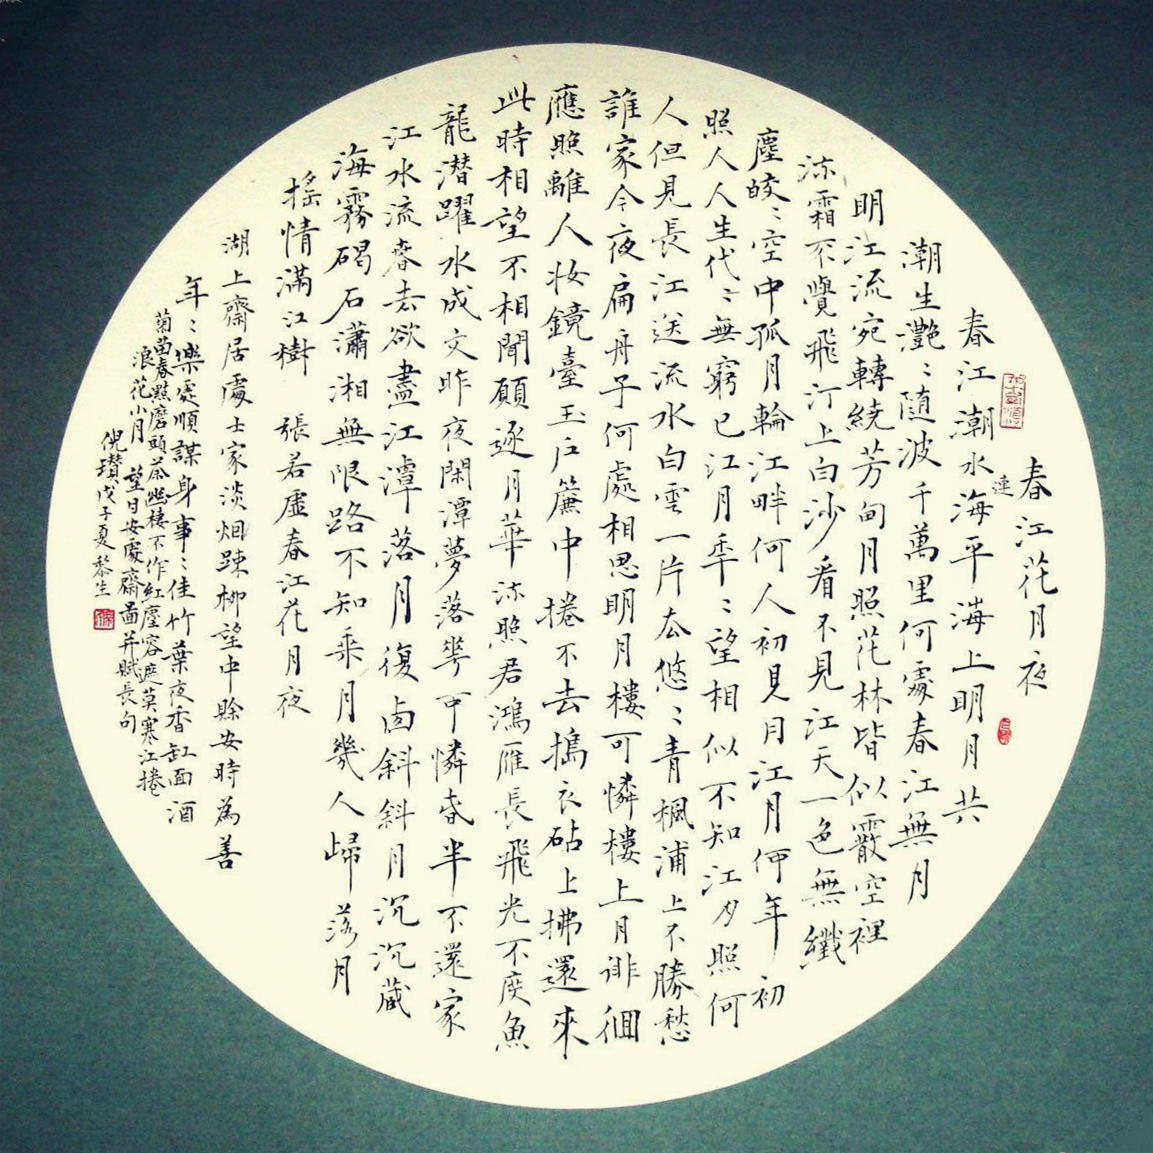 春江花月夜
春江潮水海平海上明月共
連
潮生灩ミ随波千萬里何處春江無月
明江流宛轉繞芳甸月照花林皆似霰空裡
流霜不覺飛汀上白沙看不見江天一色無纖
塵皎ミ空中孤月輪江畔何人初見月江月何年初
照人人生代ミ無窮已江月年ミ望相似不知江月照何
人但見長江送流水白雲一片去悠ミ青楓浦上不勝愁
誰家今夜扁舟子何處相思明月樓可憐樓上月徘徊
應照離人妝鏡臺玉戶簾中捲不去搗衣砧上拂還來
此時相望不相聞願逐月華流照君鴻雁長飛光不度魚
龍潜躍水成文昨夜閑潭夢落花可憐春半不還家
江水流春去欲盡江潭落月復斜斜月沉沉藏
海霧碣石瀟湘無限路不知乘月幾人歸落月
搖情滿江樹 張若虛春江花月夜
湖上齋居處士家淡烟踈柳望中賖安時為善
年ミ樂處順謀身事ミ佳竹葉夜香缸面酒
菊苗春點磨頭茶幽棲不作紅塵容遮莫寒江捲
浪花小月 望日安處齋圖并賦長句
倪瓚戊子夏黎生